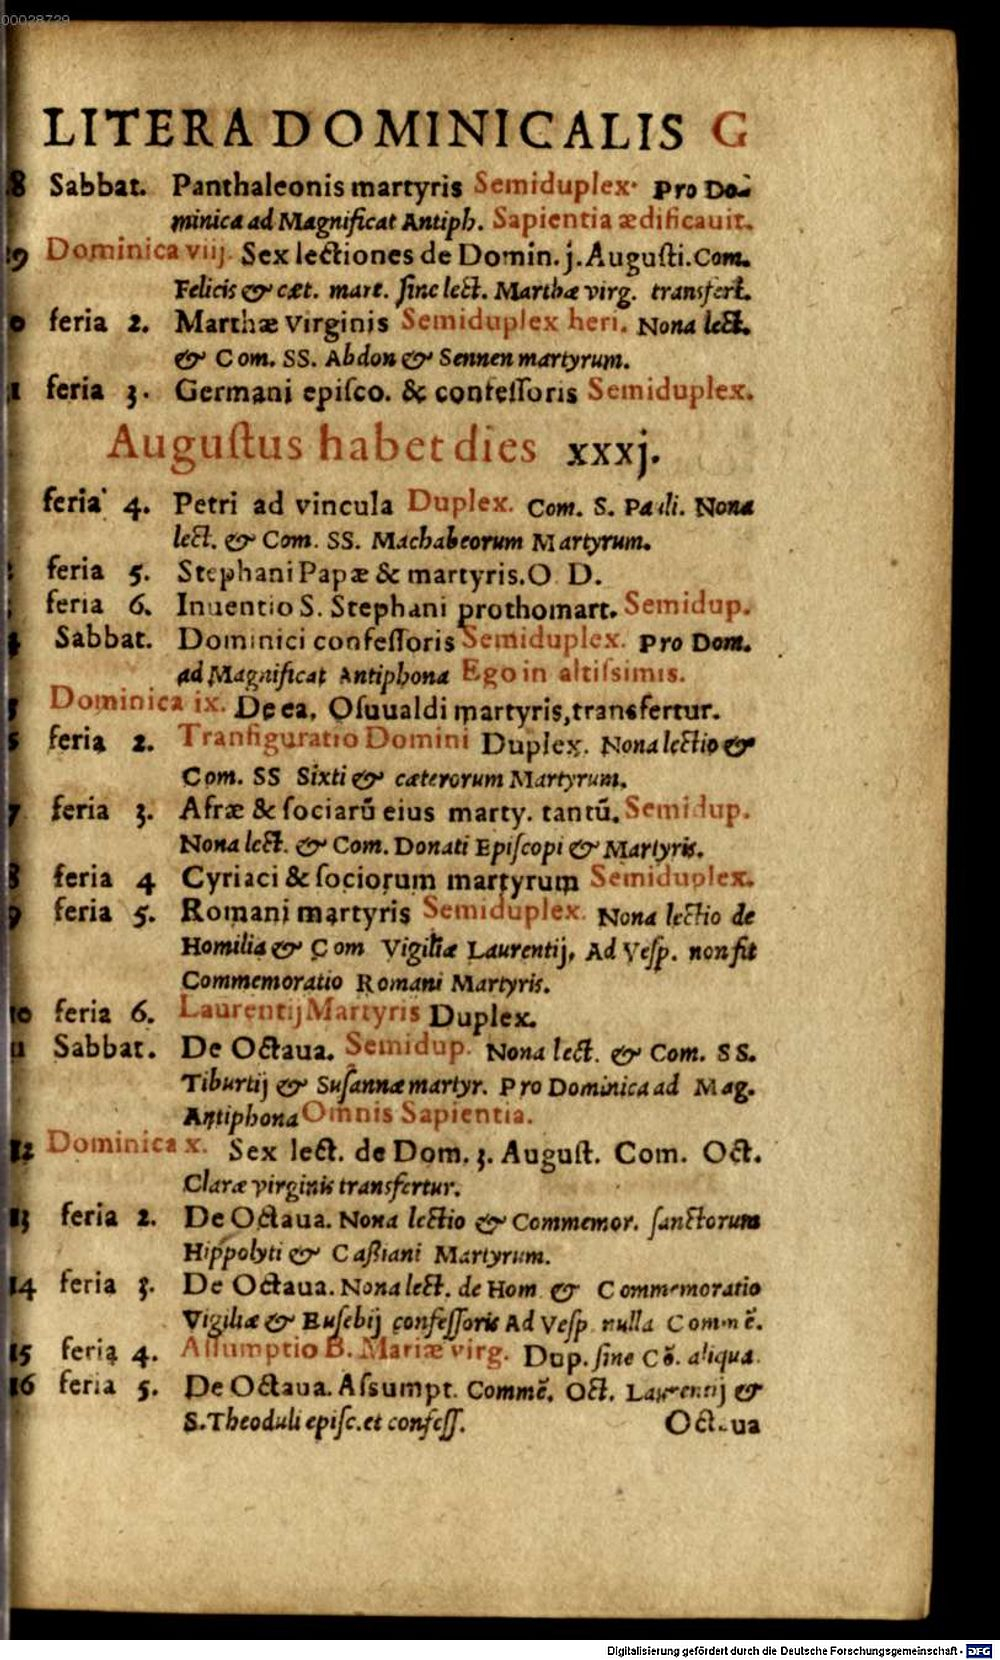 00028729
LITERA DOMINICALIS G
8 Sabbat. Panthaleonis martyris Semiduplex. Pro Do-
minica ad Magnificat Antiph. Sapientia ædificauit.
9 Dominica viij. Sex lectiones de Domin. j. Augusti. Com.
Felicis & cæt. mart. sine lect. Marthæ virg. transfert.
0 feria 2. Marthæ Virginis Semiduplex heri. Nona lect.
& Com. SS. Abdon & Sennen martyrum.
1 feria 3. Germani episco. & confessoris Semiduplex.
Augustus habet dies xxxj.
feria 4. Petri ad vincula Duplex. Com. S. Pauli. Nona
lect. & Com. SS. Machabeorum Martyrum.
feria 5. Stephani Papæ & martyris. O D.
feria 6. Inuentio S. Stephani prothomart. Semidup.
4 Sabbat. Dominici confessoris Semiduplex. Pro Dom.
ad Magnificat Antiphona Ego in altissimis.
5 Dominica ix. De ea. Osuualdi martyris, transfertur.
6 feria 2. Transfiguratio Domini Duplex. Nona lectio &
Com. SS Sixti & cæterorum Martyrum.
7 feria 3. Afræ & sociarũ eius marty. tantũ. Semidup.
Nona lect. & Com. Donati Episcopi & Martyris.
8 feria 4 Cyriaci & sociorum martyrum Semiduplex.
9 feria 5. Romani martyris Semiduplex. Nona lectio de
Homilia & Com Vigiliæ Laurentij, Ad Vesp. non fit
Commemoratio Romani Martyris.
10 feria 6. Laurentij Martyris Duplex.
11 Sabbat. De Octaua. Semidup. Nona lect. & Com. SS.
Tiburtij & Susannæ martyr. Pro Dominica ad Mag.
Antiphona Omnis Sapientia.
12 Dominica x. Sex lect. de Dom. 3. August. Com. Oct.
Claræ virginis transfertur.
13 feria 2. De Octaua. Nona lectio & Commemor. sanctorum
Hippolyti & Cassiani Martyrum.
14 feria 3. De Octaua. Nona lect. de Hom & Commemoratio
Vigiliæ & Eusebij confessoris Ad Vesp nulla Commẽ.
15 feria 4. Assumptio B. Mariæ virg. Dup. sine Cõ. aliqua.
16 feria 5. De Octaua. Assumpt. Commẽ. Oct. Laurentij &
S. Theoduli episc. et confess. Octaua
Digitalisierung gefördert durch die Deutsche Forschungsgemeinschaft - DFG